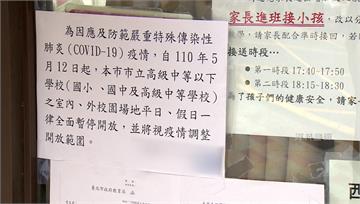 為因應及防範嚴重特殊傳染性
肺炎(COVID-19)疫情,自110年5
月12日起,本市市立高級中等以下
學校(國小、國中及高級中等學校)
之室內、外校園場地平日、假日一
律全面暫停開放,並將視疫情調整
開放範圍。
家長進班接小孩,
請家長配合準時接回,
接送時段…
第一時段17:40-17:50
第二時段18:15-18:30
為了孩子們的健康安全,請家
臺北市政府教育局 函